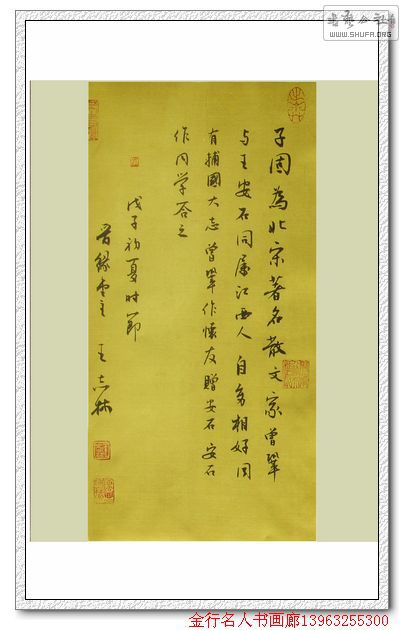 书法公社
WWW.SHUFA.ORG
子固為北宋著名散文家曾鞏
与王安石同属江西人自相好同
有國大志曾鞏作懷友贈安石安石
作同学答之
戊子初夏时节
缘堂主 王林
金行名人书画廊13963255300